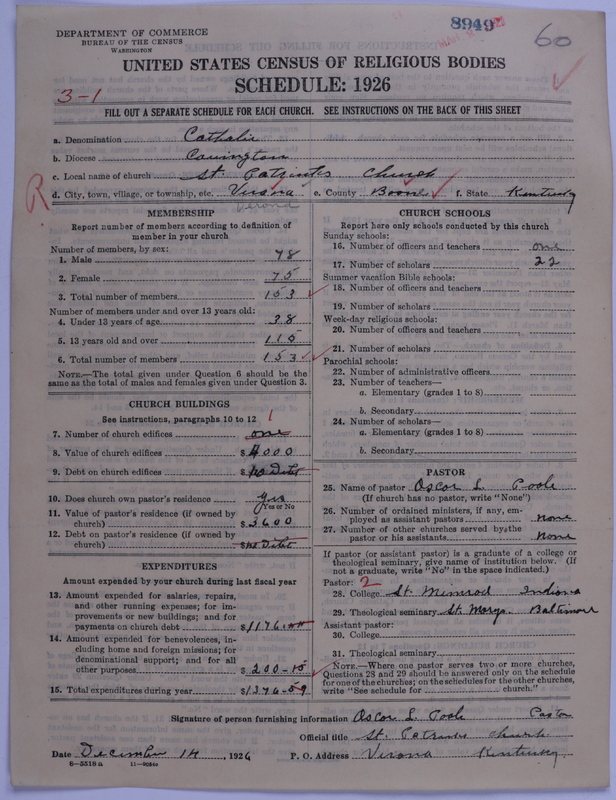 DEPARTMENT OF COMMERCE
BUREAU OF THE CENSUS
WASHINGTON
8949
60
UNITED STATES CENSUS OF RELIGIOUS BODIES
SCHEDULE: 1926
3-1
FILL OUT A SEPARATE SCHEDULE FOR EACH CHURCH. SEE INSTRUCTIONS ON THE BACK OF THIS SHEET
a. Denomination Catholic
b. Diocese Covington
c. Local name of church St. Patricks Church
R
d. City, town, village, or township, etc. Verona e. County Boone f. State Kentucky
Verona
MEMBERSHIP
Report number of members according to definition of
member in your church
Number of members, by sex:
1. Male 78
2. Female 75
3. Total number of members 153
Number of members under and over 13 years old:
4. Under 13 years of age 38
5. 13 years old and over 115
6. Total number of members 153
NOTE.—The total given under Question 6 should be
same as the total of males and females given under Question 3.
CHURCH BUILDINGS
See instructions, paragraphs 10 to 12
1
7. Number of church edifices one
8. Value of church edifices $4000
9. Debt on church edifices $no Debt
10. Does church own pastor's residence Yes
Yes or No
11. Value of pastor's residence (if owned by
church) $3600
12. Debt on pastor's residence (if owned by
church) $no Debt
EXPENDITURES
Amount expended by your church during last fiscal year
13. Amount expended for salaries, repairs,
and other running expenses; for im-
provements or new buildings; and for
payments on church debt $1176.
14. Amount expended for benevolences, in-
cluding home and foreign missions; for
denominational support; and for all
other purposes $200-15
15. Total expenditures during year $1376-59
CHURCH SCHOOLS
Report here only schools conducted by this church
Sunday schools:
16. Number of officers and teachers one
17. Number of scholars 22
Summer vacation Bible schools:
18. Number of officers and teachers
19. Number of scholars
Week-day religious schools:
20. Number of officers and teachers
21. Number of scholars
Parochial schools:
22. Number of administrative officers
23. Number of teachers—
a. Elementary (grades 1 to 8)
b. Secondary
24. Number of scholars—
a. Elementary (grades 1 to 8)
b. Secondary
PASTOR
25. Name of pastor Oscar L. Poole
(If church has no pastor, write "None")
26. Number of ordained ministers, if any, em-
ployed as assistant pastors none
27. Number of other churches served by the
pastor or his assistants None
If pastor (or assistant pastor) is a graduate of a college or
theological seminary, give name of institution below. (If
not a graduate, write "No" in the space indicated.)
Pastor: 2
28. College St. Meinrad Indiana
29. Theological seminary St. Marys. Baltimore
Assistant pastor:
30. College
31. Theological seminary
NOTE.—Where one pastor serves two or more churches,
Questions 28 and 29 should be answered only on the schedule
for one of the churches; on the schedules for the other churches,
write "See schedule for church."
Signature of person furnishing information Oscar L. Poole Pastor
Official title St. Patricks church
Date December 14, 1926 P. O. Address Verona Kentucky
8-5518 a 11-9084a